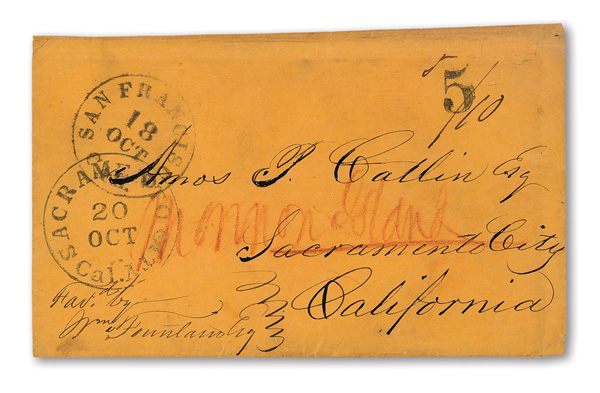 SAN FRANCISCO
18
OCT
SACRAMENTO
20
OCT
Cal.
5
/10
Amos P. Catlin Esq
Mormon Island
Sacramento City
California
Fav.d by
Wm
Esq